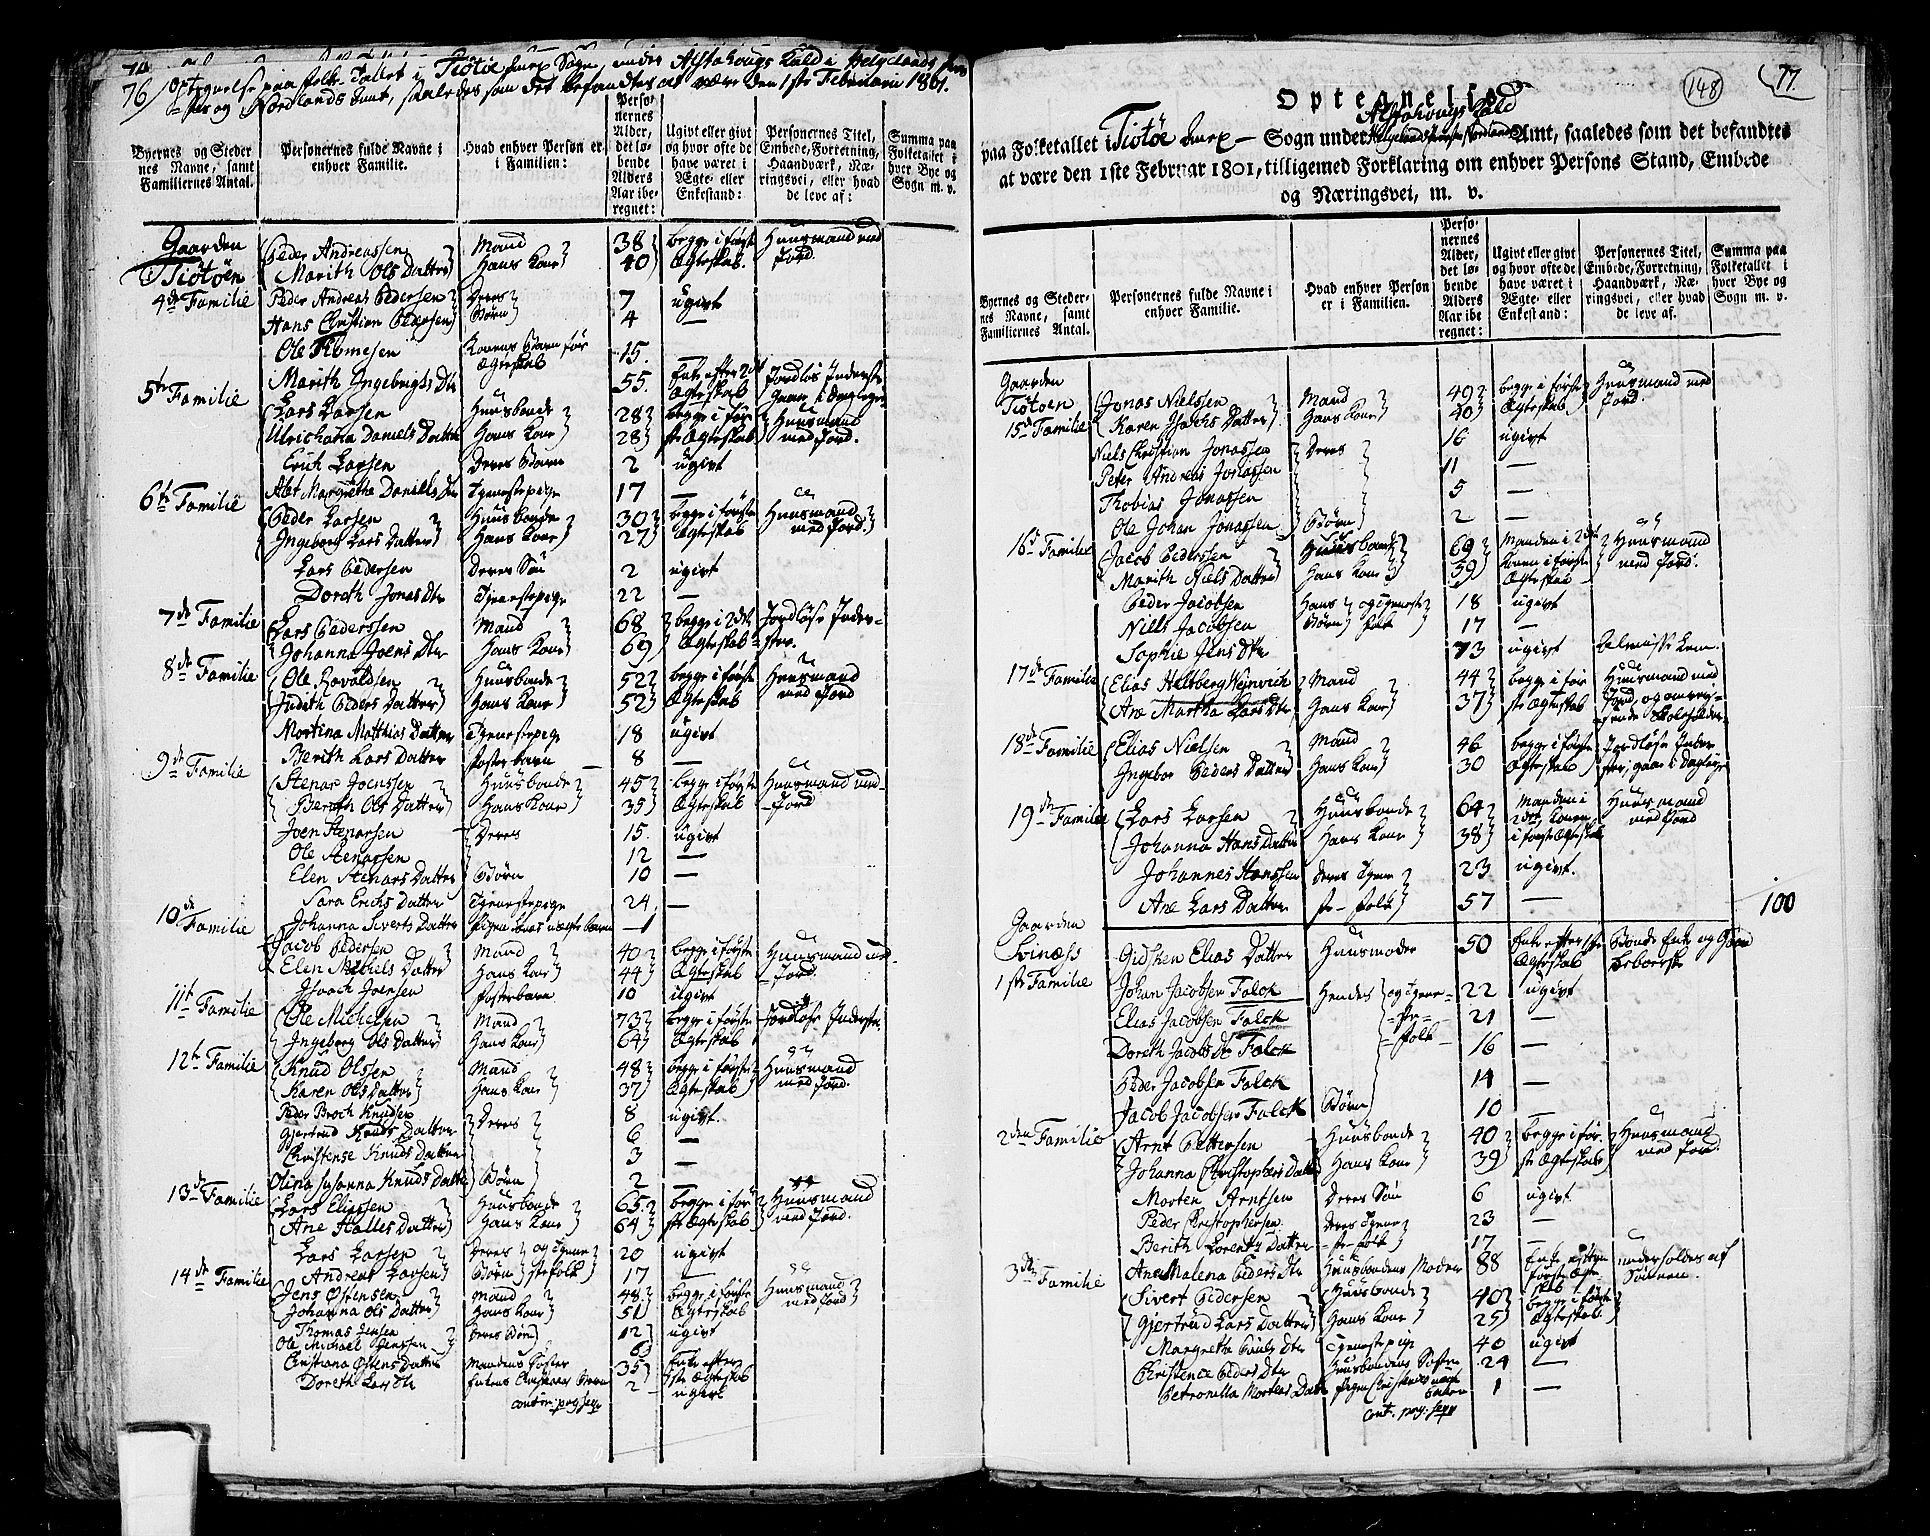 76
Optegnelse paa Folke Tallet i Tiøtøe Anex Sogn, under Alstahougs Kald i Helgelands
og Nordlands Amt, saaledes som det befandtes at være den 1ste Februarii 1801.
Byernes og Steder nes Navne, samt Familiernes Antal.
Personernes fulde Navne i enhver Familie.
Hvad enhver Person er i Familien:
Perso- nernes Alder, det lø- bende Alders Aar ibe- regnet:
Ugivt eller givt og hvor ofte de have været i Ægte- eller Enkestand:
Personernes Titel, Embede, Forretning, Haandværk, Næ- ringsvei, eller hvad de leve af:
Summa paa Folketallet i hver Bye og Sogn m. v.
Gaarden Tiøtøen
4de Familie
Peder Andreassen Mand 38 begge i første Huusmand med
Marith Ols Datter Hans Kone 40 Ægteskab. Jord.
Peder Andreas Pedersen Deres 7 ugivt
Hans Christian Pedersen Børn 4 —
Ole Thomesen Konens Barn før Ægteskab 15.
5te Familie
Marith Ingebrigts Dtr 55. Enke efter 2det Ægteskab Jordløs Inderste
Lars Larsen Huusbonde 28 begge i før- Huusmand
Ulrichana Daniels Datter Hans Kone 28 ste Ægteskab med Jord.
Erich Larsen Deres Barn 2 ugivt
Alet Margrethe Daniels Dtr Tjenestepige 17 —
6te Familie
Peder Larsen Huusbonde 30 begge i første Huusmand
Ingeborg Lars Datter Hans Kone 27 Ægteskab med Jord.
Lars Pedersen Deres Søn 2 ugivt
Doreth Jonas Dtr Tjenestepige 22 —
7de Familie
Lars Pederssen Mand 68 begge i 2det Jordløse Inder-
Johanna Joens Dtr Hans Kone 69 Ægteskab ster.
8de Familie
Ole Havoldsen Huusbonde 52 begge i første Huusmand
Judith Peders Datter Hans Kone 52 Ægteskab med Jord
Martina Matthias Datter Tjenestepige 18 ugivt
Berith Lars Datter Fosterbarn 8 —
9de Familie
Stenar Joenssen Huusbonde 45 begge i første Huusmand med
Berith Ols Datter Hans Kone 35 Ægteskab Jord
Joen Stenarsen Deres 15. ugivt
Ole Stenarsen 12 —
Elen Stenars Datter Børn 10 —
Sara Erichs Datter Tjenestepige 24 —
10de Familie
Johanna Siverts Datter Pigen Saras uægte barn 1
Jacob Pedersen Mand 40 begge i første Huusmand med
Elen Michels Datter Hans Kone 44 Ægteskab Jord.
Isaach Joensen Fosterbarn 10 ugivt
11te Familie
Ole Michelsen Mand 73 begge i første Jordløse Inderste
Ingeborg Ols Datter Hans Kone 64 Ægteskab
12te Familie
Knud Olssen Mand 48 begge i første Huusmand
Karen Ols Datter Hans Kone 37 Ægteskab med Jord.
Peder Broch Knudsen Deres 8 ugivt.
Gjertrud Knuds Datter 6 —
Christense Knuds Datter 3 —
Olina Susanna Knuds Datter Børn 2 —
13de Familie
Lars Eliassen Huusbonde 65 begge i før- Huusmand
Ane Halles Datter Hans Kone 64 ste Ægteskab med Jord.
Lars Larsen Deres og Tjene- 20 ugivt
Andreas Larsen Børn stefolk 17 —
14de Familie
Jens Østensen Mand 48 begge i første Huusmand
Johanna Ols Datter Hans Kone 51 Ægteskab med Jord
Thomas Jensen Deres Børn 12 ugivt
Ole Michael Jenssen 6
Christiana Østens Datter Mandens Søster 35 Enke efter 1ste Ægteskab
Doreth Lars Dtr Enkens Barn 2 ugivt
contin: pag: seqv
148
77.
Optegnelse
paa Folketallet i Tiøtøe Anex — Sogn under Alstahougs Kald Amt, saaledes som det befandtes
at være den 1ste Februar 1801, tilligemed Forklaring om enhver Persons Stand, Embede
og Næringsvei, m. v.
Byernes og Steder- nes Navne, samt Familiernes Antal.
Personernes fulde Navne i enhver Familie.
Hvad enhver Person er i Familien.
Perso- nernes Alder, det lø- bende Alders Aar ibe regnet:
Ugivt eller givt og hvor ofte de have været i Ægte- eller Enkestand:
Personernes Titel, Embede, Forretning, Haandværk, Næ- ringsvei, eller hvad de leve af.
Summa paa Folketallet i hver Bye og Sogn m. v.
Gaarden Tiøtoen
15de Familie
Jonas Nielssen Mand 49 begge i første Huusmand med
Karen Isachs Datter Hans Kone 40 Ægteskab Jord.
Niels Christian Jonassen Deres 16 ugivt
Peter Andreas Jonassen 11 —
Thobias Jonassen 5 —
Ole Johan Jonassen Børn 2 —
16de Familie
Jacob Pederssen Huusbonde 69 Manden i 2det Huusmand
Marith Niels Datter Hans Kone 59 Konen i første Ægteskab med Jord.
Peder Jacobsen Hans og Tjeneste 18 ugivt
Niels Jacobsen Børn folk 17 —
Sophie Jens Dtr 73 ugivt Almisse Lem.
17de Familie
Elias Heltberg Weinrich Mand 44 begge i før- Huusmand med
Ane Martha Lars Dtr Hans Kone 37 ste Ægteskab Jord, og omrej- sende Skoleholder
18de Familie
Elias Nielsen Mand 46 begge i første Jordløse Inder-
Ingebor Peders Datter Hans Kone 30 Ægteskab ster, gaar i Dagleje
19de Familie
Lars Larsen Huusbonde 64 Manden i 2det Konen Huusmand
Johanna Hans Datter Hans Kone 38 i første Ægteskab med Jord
Johannes Hanssen deres Tjene- 23 ugivt.
Ane Lars Datter ste-folk 57 —
100
Gaarden Svinæss
1ste Familie
Gidsken Elias Datter Huusmoder 50 Enke efter 1ste Ægteskab Bonde Enke og Gaard
Johan Jacobsen Falck Hendes og Tjene- 22 ugivt
Elias Jacobsen Falck ste- 21 —
Doreth Jacobs Dtr Falck folk 16 —
Peder Jacobsen Falck 14 —
Jacob Jacobsen Falck Børn 10 —
2den Familie
Arnt Pettersen Huusbonde 40 begge i før- Huusmand
Johanna Christophers Datter Hans Kone 39 ste Ægteskab med Jord.
Morten Arntsen Deres Søn 6 ugivt
Peder Christophersen deres Tjene- 23 —
Berith Lorentz Datter ste-folk 17 —
3de Familie
Ane Malena Peders Dtr Huusbondens Moder 88 Enke efter første Ægteskab underholdes af Sønnen.
Sivert Pedersen Huusbonde 40 begge i første
Gjertrud Lars Datter Hans Kone 25 Ægteskab
Margrethe Dtr Tjenestepige 40 ugivt
Christence Peders Dtr Huusbondens Søster 24 —
Petronella Mortens Datter Pigen Christences uægte barn 1 —
cont. pag: seqv